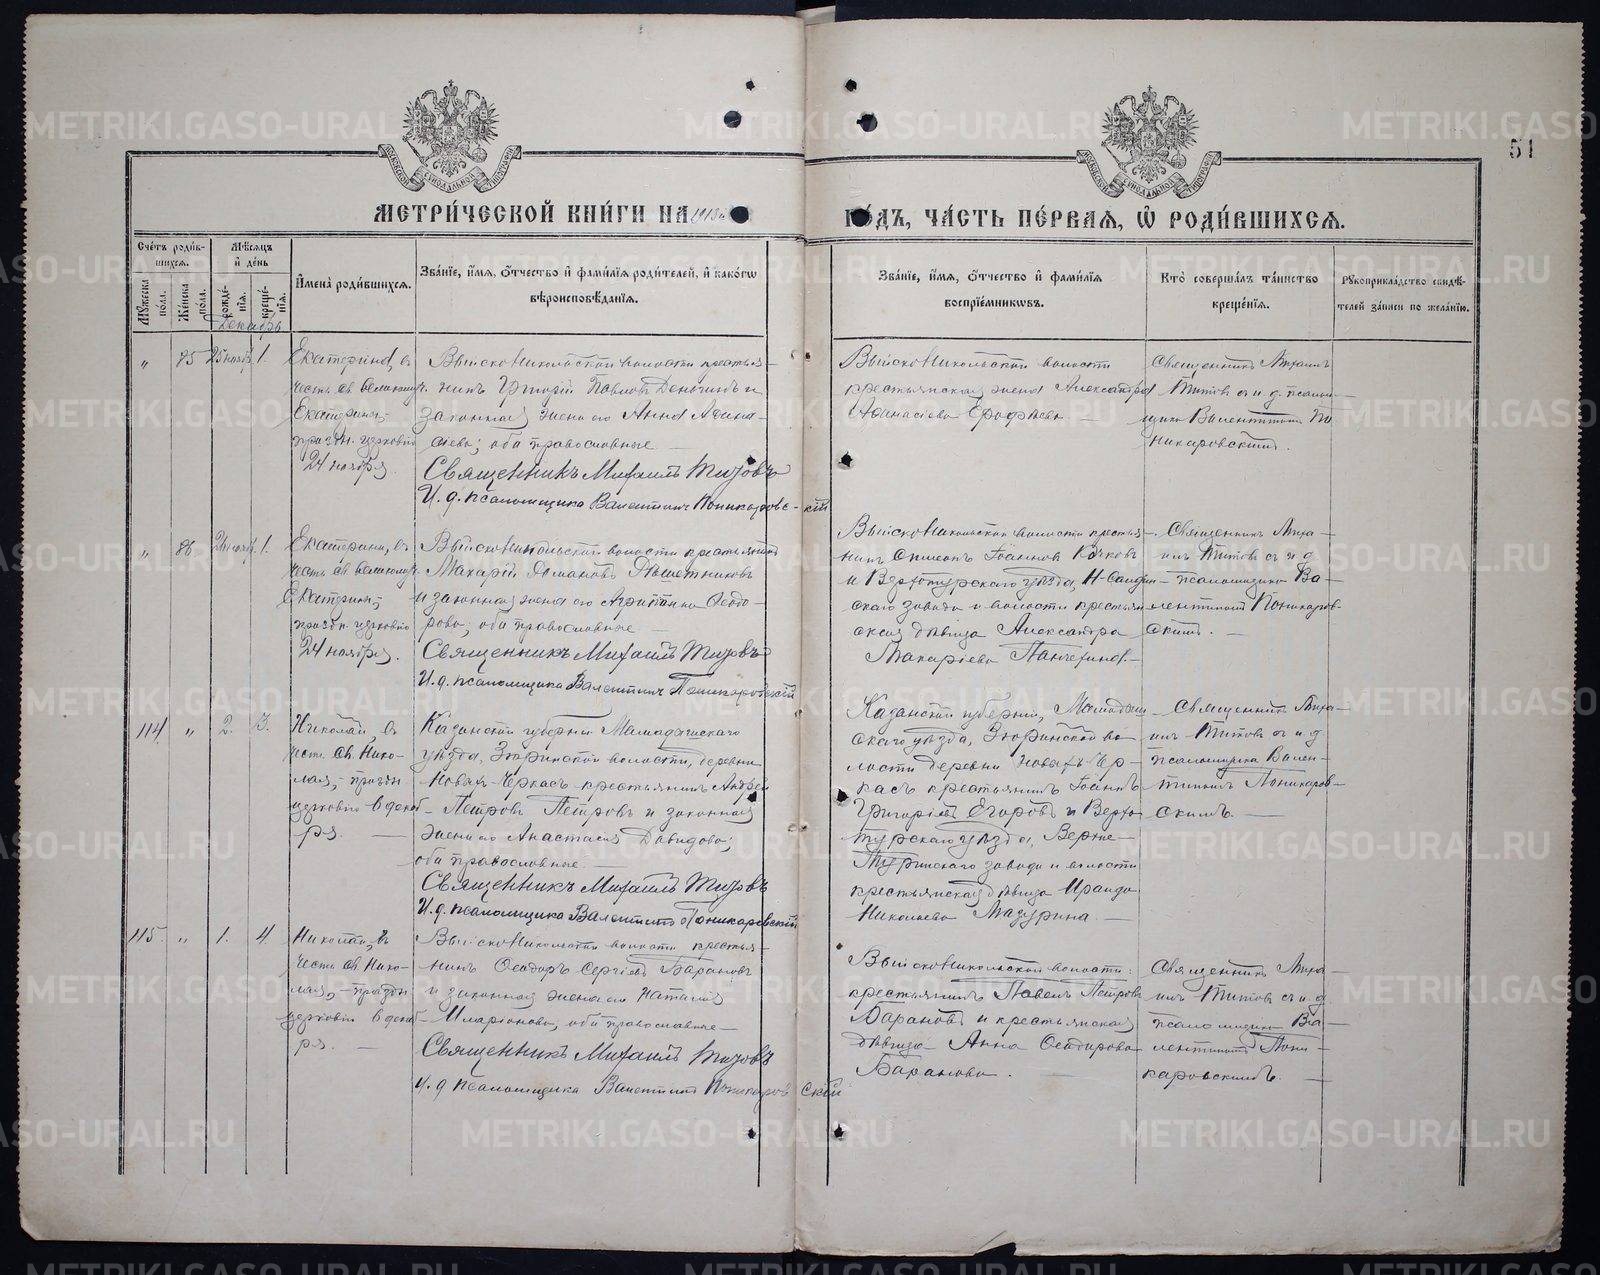 51
МЕТРИ́ЧЕСКОЙ КНИ́ГИ НА 1913й
ГО́ДЪ, ЧА́СТЬ ПЕ́РВАЯ, Ѡ҆ РОДИ́ВШИХСЯ.
Сче́тъ роди́в-
шихся.
Мꙋ́жеска по́ла.
Же́нска по́ла.
Мѣ́сяцъ
и҆ де́нь
рожде́-нія.
креще́-нія.
И҆мена̀ роди́вшихся.
Зва́ніе, и҆́мя, ѻ҆́тчество и҆ фами́лія роди́телей, и҆ како́гѡ
вѣроисповѣ́данія.
Зва́ніе, и҆́мя, ѻ҆́тчество и҆ фами́лія
воспріе́мникѡвъ.
Кто̀ соверша́лъ та́инство
креще́нія.
Рꙋкоприкла́дство свидѣ́-
телей за́писи по жела́нію.
Декабрь
" 85 25 ноябр. 1.
Екатерина, въ
честь св. великомуч.
Екатерины,
праздн. церковію
24 ноября.
Выйско Никольской волости крестья-
нинъ Григорій Павловъ и
законная жена его Анна Афина-
сіева; оба православные
Священникъ Михаилъ Титовъ
И. д. псаломщика Валентинъ Поникаровскій
Выйско Никольской волости
крестьянская жена Александра
Афанасіева Ерофѣева
Священникъ Михаилъ
Титовъ съ и. д. псалом-
щика Валентиномъ По
никаровскимъ.
" 86 26 ноябр. 1.
Екатерина, въ
честь св. великомуч.
Екатерины,
праздн. церковію
24 ноября.
Выйско Никольской волости крестьянинъ
Макарій Романовъ Рѣшетниковъ
и законная жена его Агриппина Ѳеодо-
рова; оба православные
Священникъ Михаилъ Титовъ
И. д. псаломщика Валентинъ Поникаровскій
Выйско Никольской волости крестья-
нинъ Симеонъ Іоанновъ
и Верхотурскаго уѣзда, Н-Салдин-
скаго завода и волости крестьян-
ская дѣвица Александра
Макаріева
Священникъ Миха-
илъ Титовъ съ и. д
псаломщика Ва-
лентиномъ Поникаров-
скимъ.
114 " 2. 3.
Николай, въ
честь св. Нико-
лая, праздн
церковію 6 декаб-
ря.
Казанской губерніи Мамадышскаго
уѣзда, Зюринской волости, деревни
Новыхъ-Черкасъ крестьянинъ Андрей
Петровъ Петровъ и законная
жена его Анастасія Давидова;
оба православные
Священникъ Михаилъ Титовъ
И. д. псаломщика Валентинъ Поникаровскій
Казанской губерніи, Мамадыш-
скаго уѣзда, Зюринской во
лости деревни Новыхъ-Чер-
касъ крестьянинъ Іоаннъ
Григорьевъ Егоровъ и Верхо
турскаго уѣзда, Верхне-
Туринскаго завода и волости
крестьянская дѣвица Ираида
Николаева Мазурина
Священникъ Миха-
илъ Титовъ съ и. д
псаломщика Вален-
тиномъ Поникаров-
скимъ.
115. " 1. 4.
Николай, въ
честь св. Нико-
лая, праздн
церковію 6 декаб-
ря.
Выйско Никольской волости крестья-
нинъ Ѳеодоръ Сергіевъ Барановъ
и законная жена его Наталія
Иларіонова, оба православные
Священникъ Михаилъ Титовъ
И. д псаломщика Валентинъ Поникаровскій
Выйско Никольской волости
крестьянинъ Павелъ Петровъ
Барановъ и крестьянская
дѣвица Анна Ѳеодорова
Баранова.
Священникъ Миха-
илъ Титовъ съ и. д
псаломщика Ва-
лентиномъ Пони-
каровскимъ.
METRIKI.GASO-URAL.RU